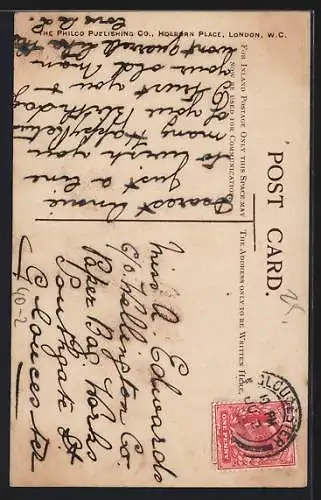 THE PHILCO PUBLISHING CO., HOLBORN PLACE, LONDON, W.C.
POST CARD.
FOR INLAND POSTAGE ONLY THIS SPACE MAY
NOW BE USED FOR COMMUNICATION
THE ADDRESS ONLY TO BE
WRITTEN HERE.
Dearest Annie
just a line
to wish you
many Happy Returns
of your Birthday
I trust you &
your old man
wont quarrel like this
Love
Miss A Edwards
C/o Hollington Co.
Paper Bag Works
Southgate St
Gloucester
40-2
GLOUCESTER
ONE PENNY